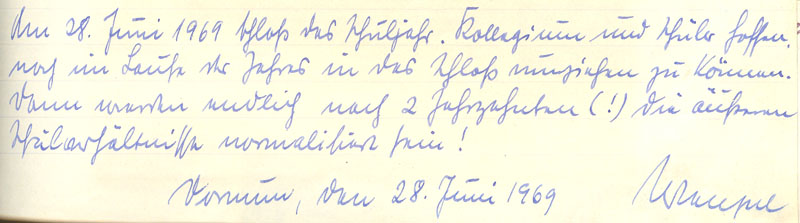 Am 28. Juni 1969 schloß das Schuljahr. Kollegium und Schüler hoffen,
noch im Laufe des Jahres in das Schloß umziehen zu können.
Dann werden endlich nach 2 Jahrzehnten (!) die äußeren
Schulverhältnisse normalisiert sein!
Dornum, den 28. Juni 1969